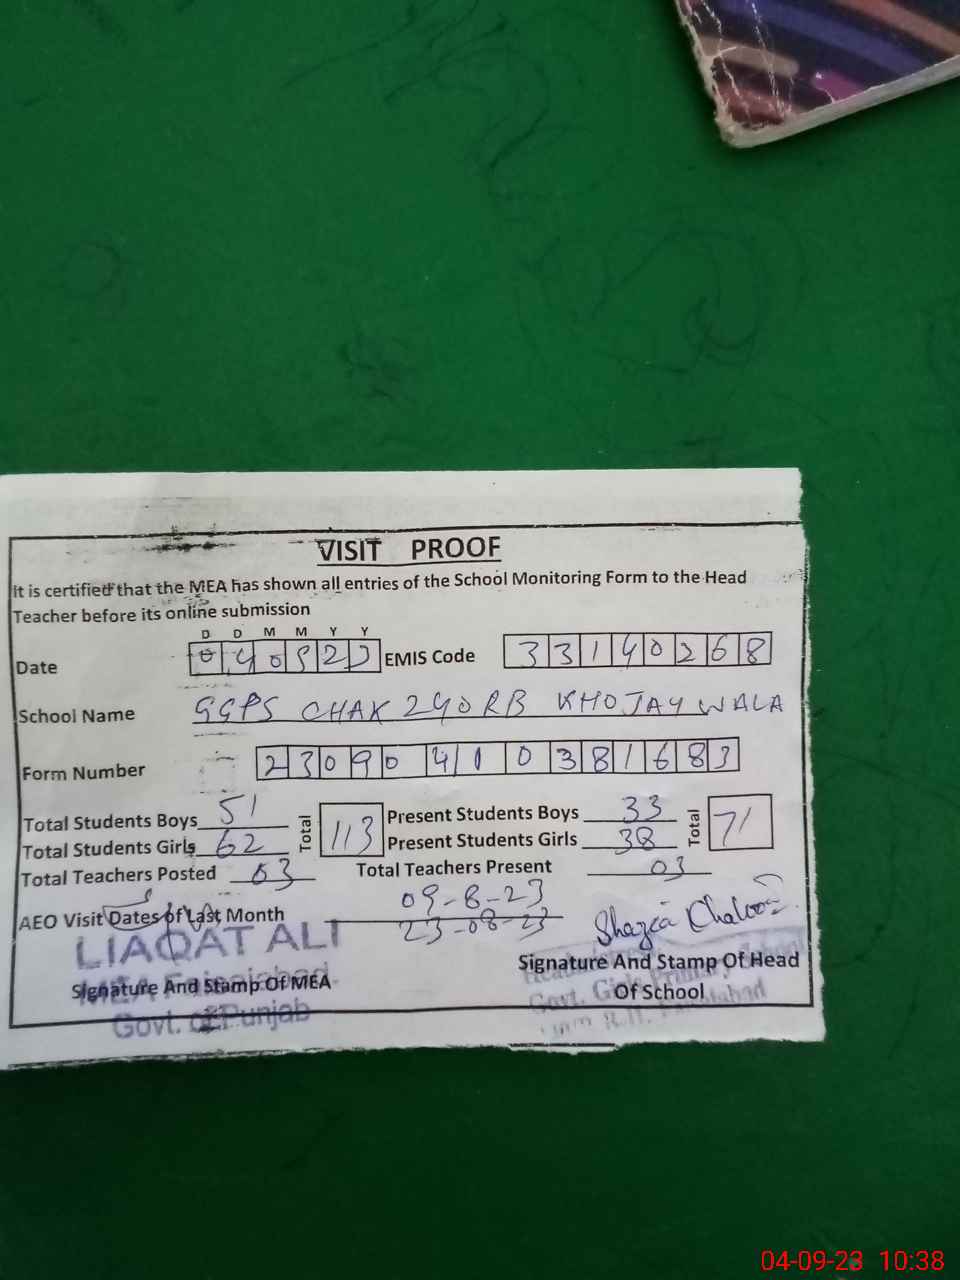 VISIT PROOF
It is certified that the MEA has shown all entries of the School Monitoring Form to the Head
Teacher before its online submission
D D M M Y Y
Date 040923 EMIS Code 33140268
School Name GGPS CHAK 240 RB KHOJAY WALA
Form Number 23090410381683
Total Students Boys 51 Total 113 Present Students Boys 33 Total 71
Total Students Girls 62 Present Students Girls 38
Total Teachers Posted 03 Total Teachers Present 03
AEO Visit Dates of Last Month 09-8-23
23-08-23
LIAQAT ALI
MEA Faisalabad
Govt. of Punjab
Signature And Stamp Of MEA
Shazia
Signature And Stamp Of Head
Of School
Govt. Girls Primary School
04-09-23 10:38